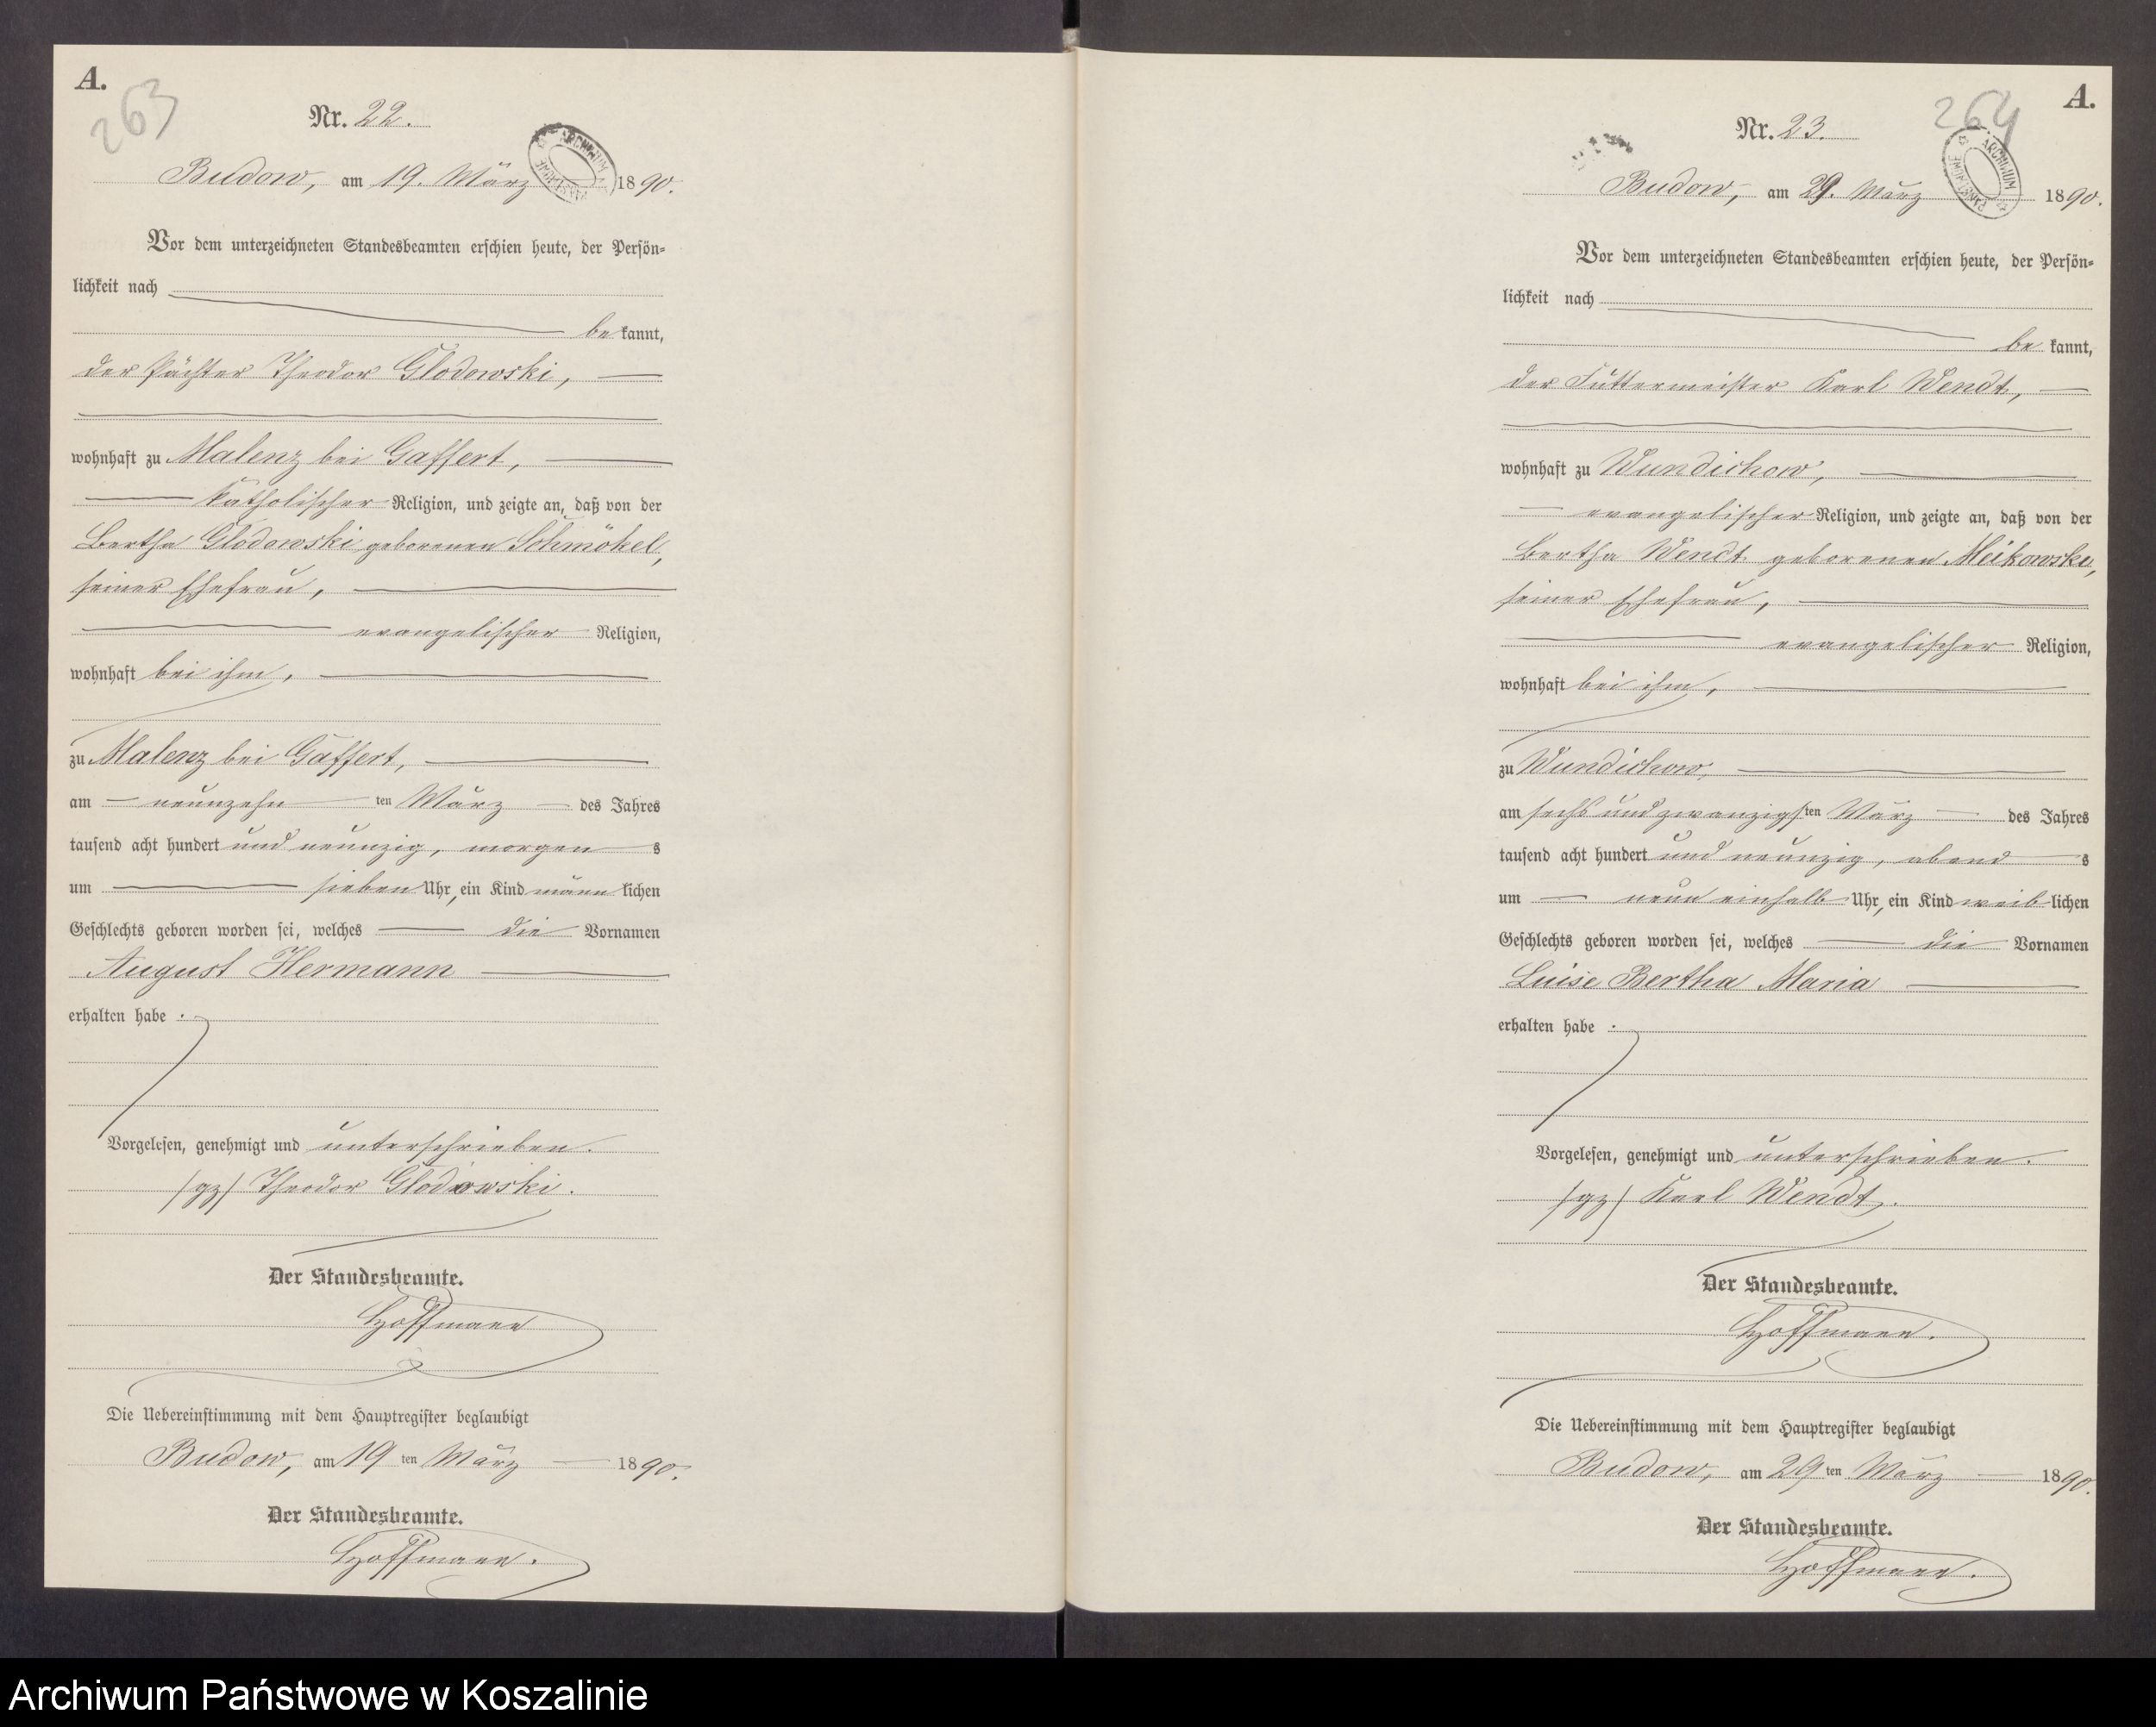 A.
263
Nr. 22.
ARCHIWUM PAŃSTWOWE
Budow, am 19. März 1890.
Vor dem unterzeichneten Standesbeamten erschien heute, der Persön=
lichkeit nach
be kannt,
der Pächter Theodor Glodowski,
wohnhaft zu Malenz bei Gaffert,
katholischer Religion, und zeigte an, daß von der
Bertha Glodowski geborenen Schmökel,
seiner Ehefrau,
evangelischer Religion,
wohnhaft bei ihm,
zu Malenz bei Gaffert,
am neunzehn ten März des Jahres
tausend acht hundert und neunzig, morgen s
um sieben Uhr, ein Kind männ lichen
Geschlechts geboren worden sei, welches die Vornamen
August Hermann
erhalten habe.
Vorgelesen, genehmigt und unterschrieben.
/gz/ Theodor Glodowski.
Der Standesbeamte.
Hoffmann
Die Uebereinstimmung mit dem Hauptregister beglaubigt
Budow, am 19 ten März 1890.
Der Standesbeamte.
Hoffmann.
A.
264
Nr. 23.
ARCHIWUM PAŃSTWOWE
Budow, am 29. März 1890.
Vor dem unterzeichneten Standesbeamten erschien heute, der Persön=
lichkeit nach
be kannt,
der Futtermeister Karl Wendt,
wohnhaft zu Wundichow,
evangelischer Religion, und zeigte an, daß von der
Bertha Wendt geborenen Meikowske,
seiner Ehefrau,
evangelischer Religion,
wohnhaft bei ihm,
zu Wundichow,
am sechs und zwanzigsten März des Jahres
tausend acht hundert und neunzig, abend s
um neun einhalb Uhr, ein Kind weib lichen
Geschlechts geboren worden sei, welches die Vornamen
Luise Bertha Maria
erhalten habe.
Vorgelesen, genehmigt und unterschrieben.
/gz/ Karl Wendt.
Der Standesbeamte.
Hoffmann.
Die Uebereinstimmung mit dem Hauptregister beglaubigt
Budow, am 29 ten März 1890.
Der Standesbeamte.
Hoffmann.
Archiwum Państwowe w Koszalinie